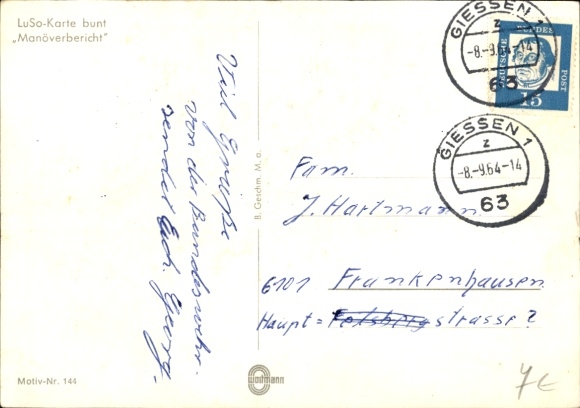 LuSo-Karte bunt
„Manöverbericht"
Viel Grüße
von der Bundeswehr.
sendet Euch. Georg.
Motiv-Nr. 144
B. Gieschm. M. a.
wodmann
GIESSEN 1
z
-8.-9.64-14
63
DEUTSCHE
BUNDES
POST
15
GIESSEN 1
z
-8.-9.64-14
63
Fam.
J. Hartmann
6101 Frankenhausen
Haupt= Felsbergstrasse 7
7€